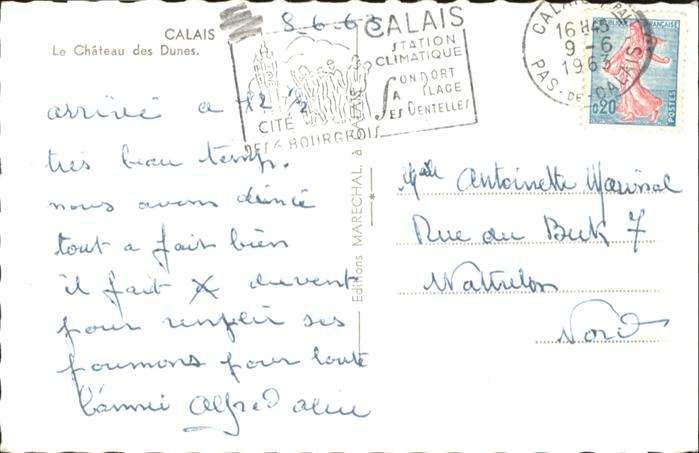 CALAIS
Le Château des Dunes.
8663
CALAIS
STATION
CLIMATIQUE
SON PORT
SA PLAGE
SES DENTELLES
CITÉ
DES 6 BOURGEOIS
CALAIS
16H45
9-6
1963
PAS-DE-CALAIS
FRANÇAISE
0,20
POSTES
arrivé a 12 ½
très beau temp.
nous avons diné
tout a fait bien
il fait X du vent
pour remplir ses
poumons pour toute
l'année Alfred aline
Editions MARECHAL, à CALAIS
Antoinette
Rue du Buck 7
Wattrelos
Nord